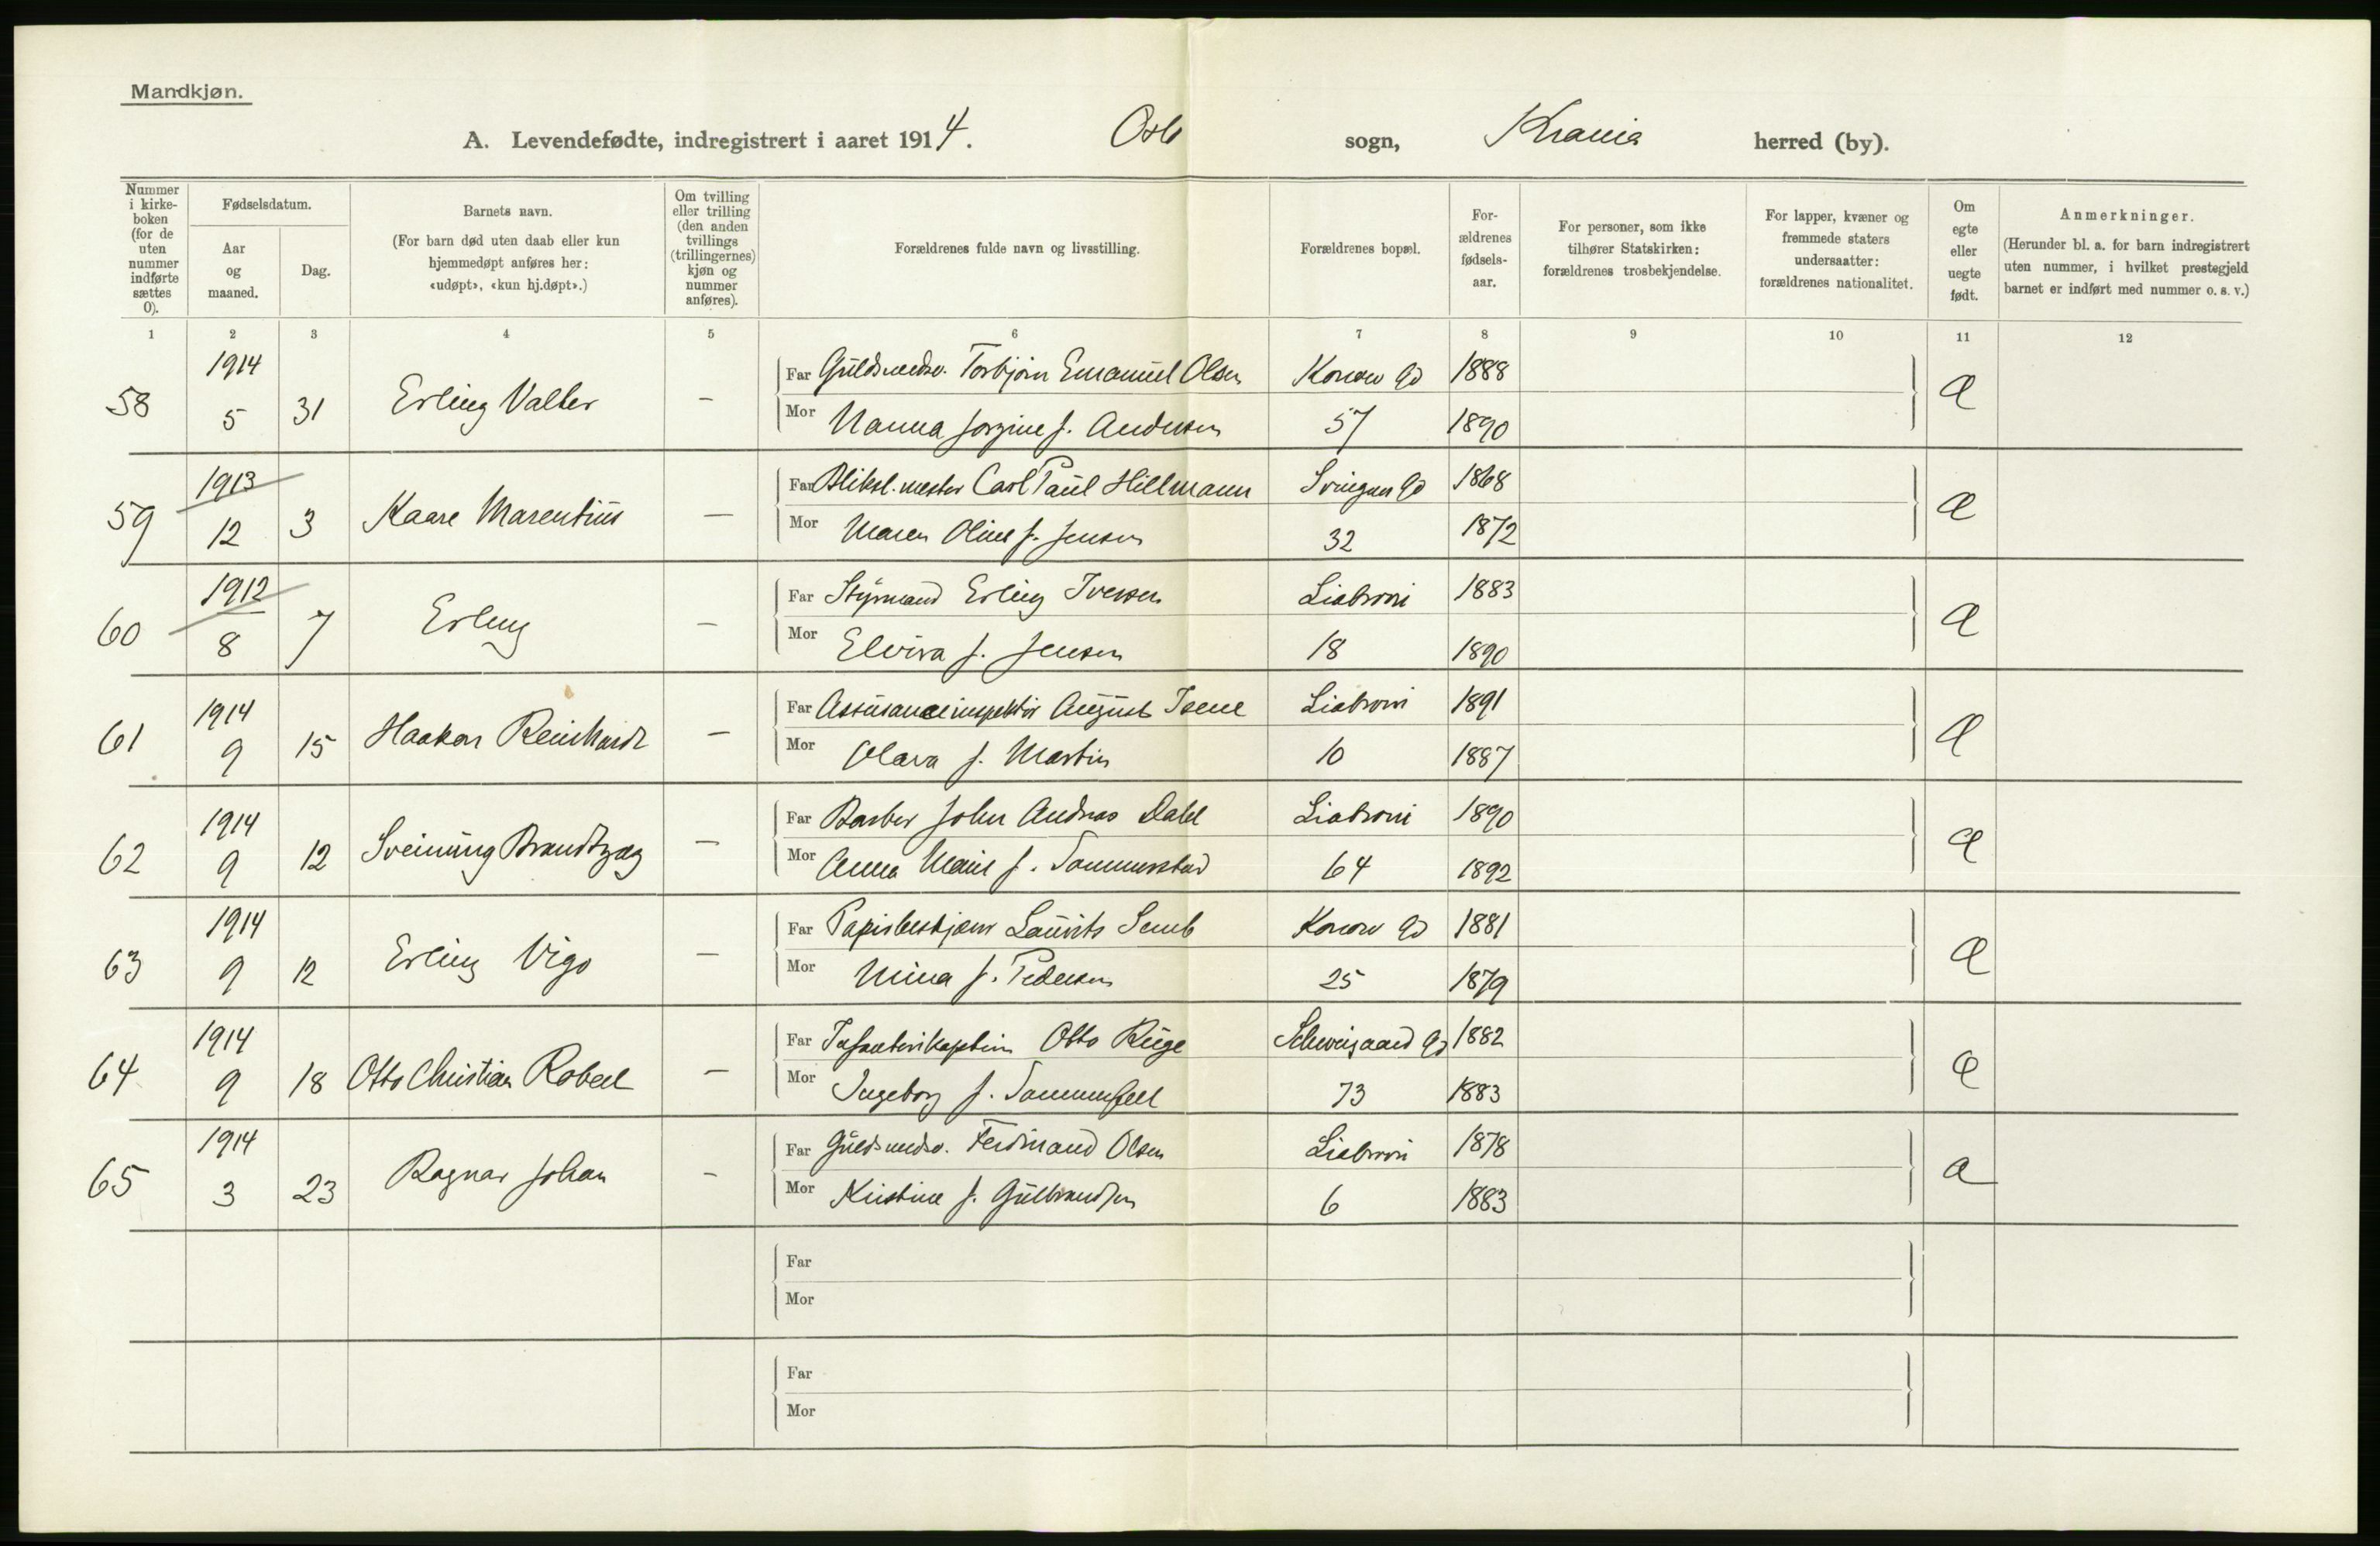 Mandkjøn.
A. Levendefødte, indregistrert i aaret 1914. Oslo sogn, Krania herred (by).
Nummer i kirke-boken (for de uten nummer indførte sættes 0).
Fødselsdatum.
Aar og maaned.
Dag.
Barnets navn.
(For barn død uten daab eller kun hjemmedøpt anføres her: «udøpt», «kun hj.døpt».)
Om tvilling eller trilling (den anden tvillings (trillingernes) kjøn og nummer anføres).
Forældrenes fulde navn og livsstilling.
Forældrenes bopæl.
For-ældrenes fødsels-aar.
For personer, som ikke tilhører Statskirken: forældrenes trosbekjendelse.
For lapper, kvæner og fremmede staters undersaatter: forældrenes nationalitet.
Om egte eller uegte født.
Anmerkninger.
(Herunder bl. a. for barn indregistrert uten nummer, i hvilket prestegjeld barnet er indført med nummer o. s. v.)
1 2 3 4 5 6 7 8 9 10 11 12
58 1914 5 31 Erling Valter –
Far Guldsmedsv. Torbjørn Emanuel Olsen Konow Gd 1888 Æ
Mor Nanna Jorgine f. Andersen 57 1890
59 1913 12 3 Kaare Marentius –
Far Bliksl.mester Carl Paul Hillmann Svingen Gd 1868 Æ
Mor Maren Oline f. Jensen 32 1872
60 1912 8 7 Erling –
Far Styrmand Erling Iversen Liabrovei 1883 Æ
Mor Elvira f. Jensen 18 1890
61 1914 9 15 Haakon Reinhardt –
Far Assuranceinspektør August Isene Liabrovei 1891 Æ
Mor Olava f. Martin 10 1887
62 1914 9 12 Sveinung Brandtzæg –
Far Barber John Andreas Dahl Liabrovei 1890 Æ
Mor Anna Marie f. 64 1892
63 1914 9 12 Erling Vigo –
Far Laurits Semb Konow Gd 1881 Æ
Mor Mina f. Pedersen 25 1879
64 1914 9 18 Otto Christian Robert –
Far Infanterikaptein Otto Ruge Schweigaard Gd 1882 Æ
Mor Ingeborg f. Sammenfelt 73 1883
65 1914 3 23 Ragnar Johan –
Far Guldsmedsv. Ferdinand Olsen Liabrovei 1878 Æ
Mor Kristine f. Gulbrandsen 6 1883
Far
Mor
Far
Mor